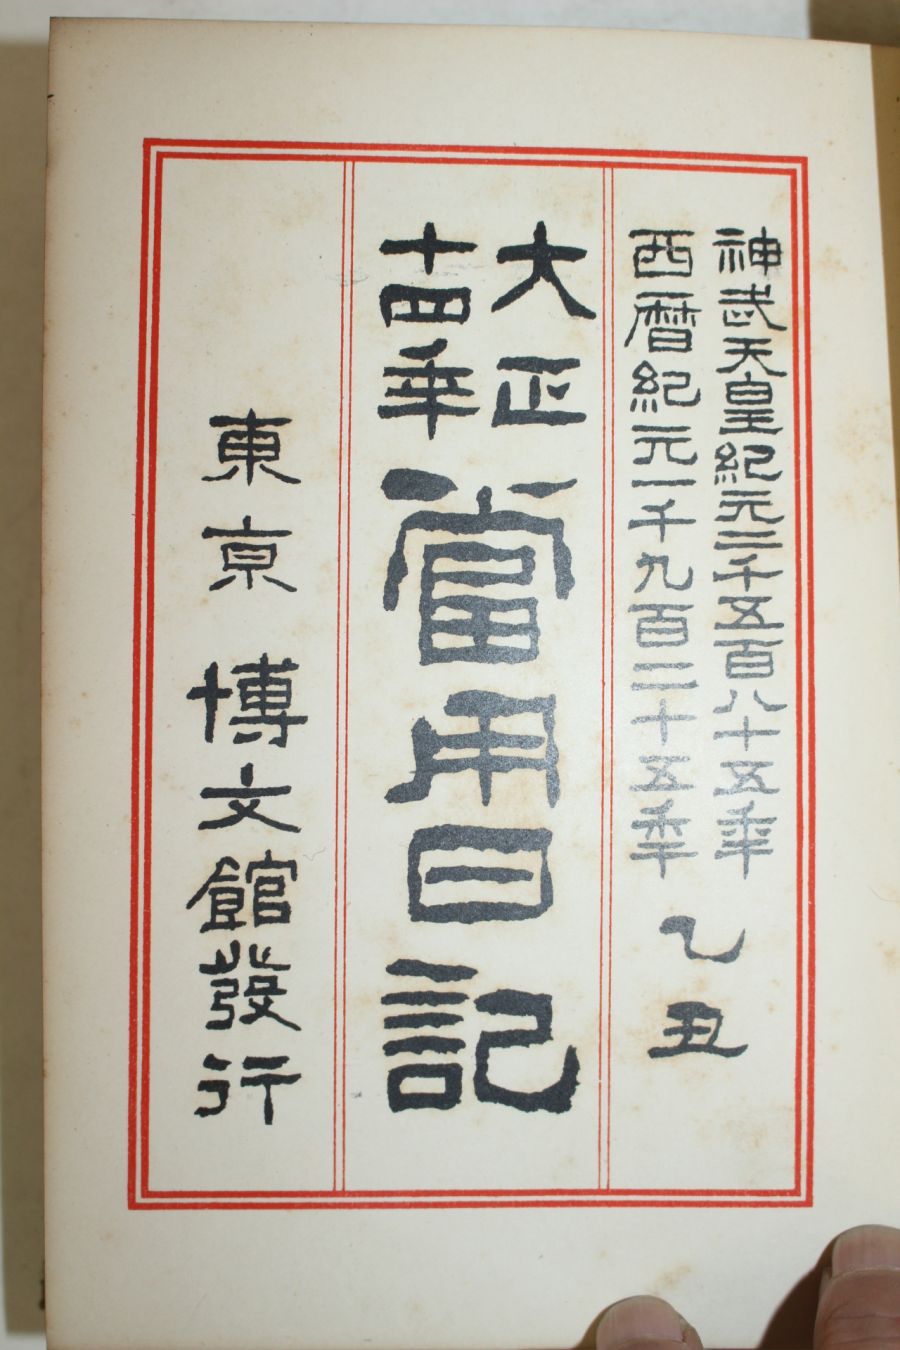 神武天皇紀元二千五百八十五年
西暦紀元一千九百二十五年
乙丑
大正
十四年
當用日記
東京 博文館發行